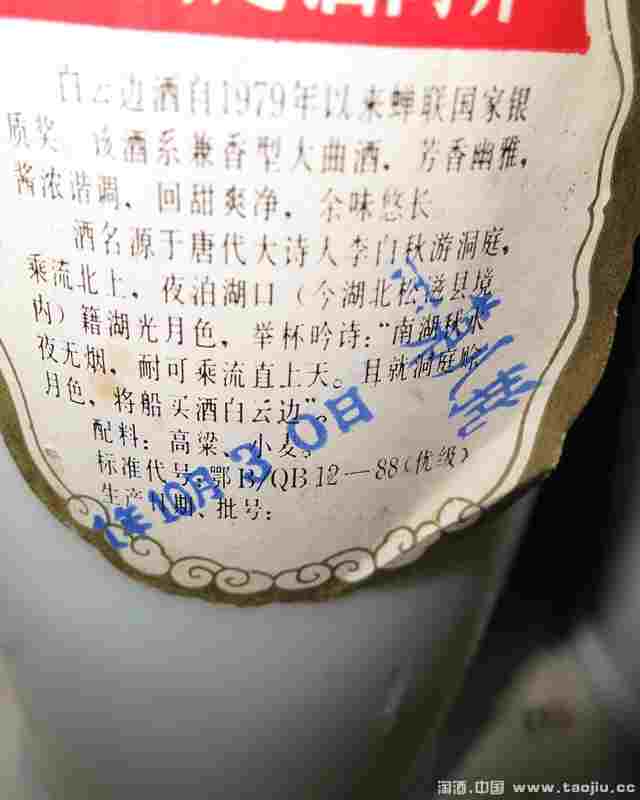 白云边酒自1979年以来蝉联国家银
质奖。该酒系兼香型大曲酒，芳香幽雅，
酱浓谐调，回甜爽净，余味悠长
酒名源于唐代大诗人李白秋游洞庭，
乘流北上，夜泊湖口（今湖北松滋县境
内）籍湖光月色，举杯吟诗：“南湖秋水
夜无烟，耐可乘流直上天。且就洞庭赊
月色，将船买酒白云边”。
配料：高粱、小麦。
标准代号：鄂B/QB12—88（优级）
生产日期、批号：
年10月30日
淘酒.中国 www.taojiu.cc